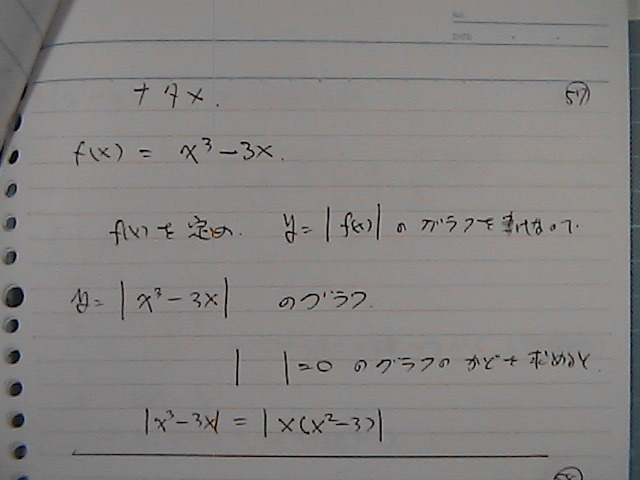 NO.
DATE
+ 4x. 57
f(x) = x³ - 3x.
f(x) を 定め. y = |f(x)| の グラフを
y = |x³ - 3x| のグラフ.
| | = 0 の グラフの かどを 求めると.
|x³ - 3x| = |x(x² - 3)|
58